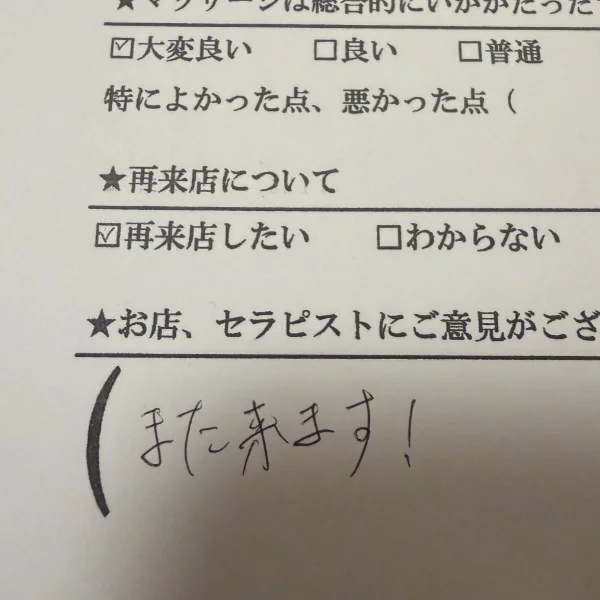 ★マッサージは総合的にいかがだった
☑大変良い □良い □普通
特によかった点、悪かった点（
★再来店について
☑再来店したい □わからない
★お店、セラピストにご意見がござ
(また来ます!